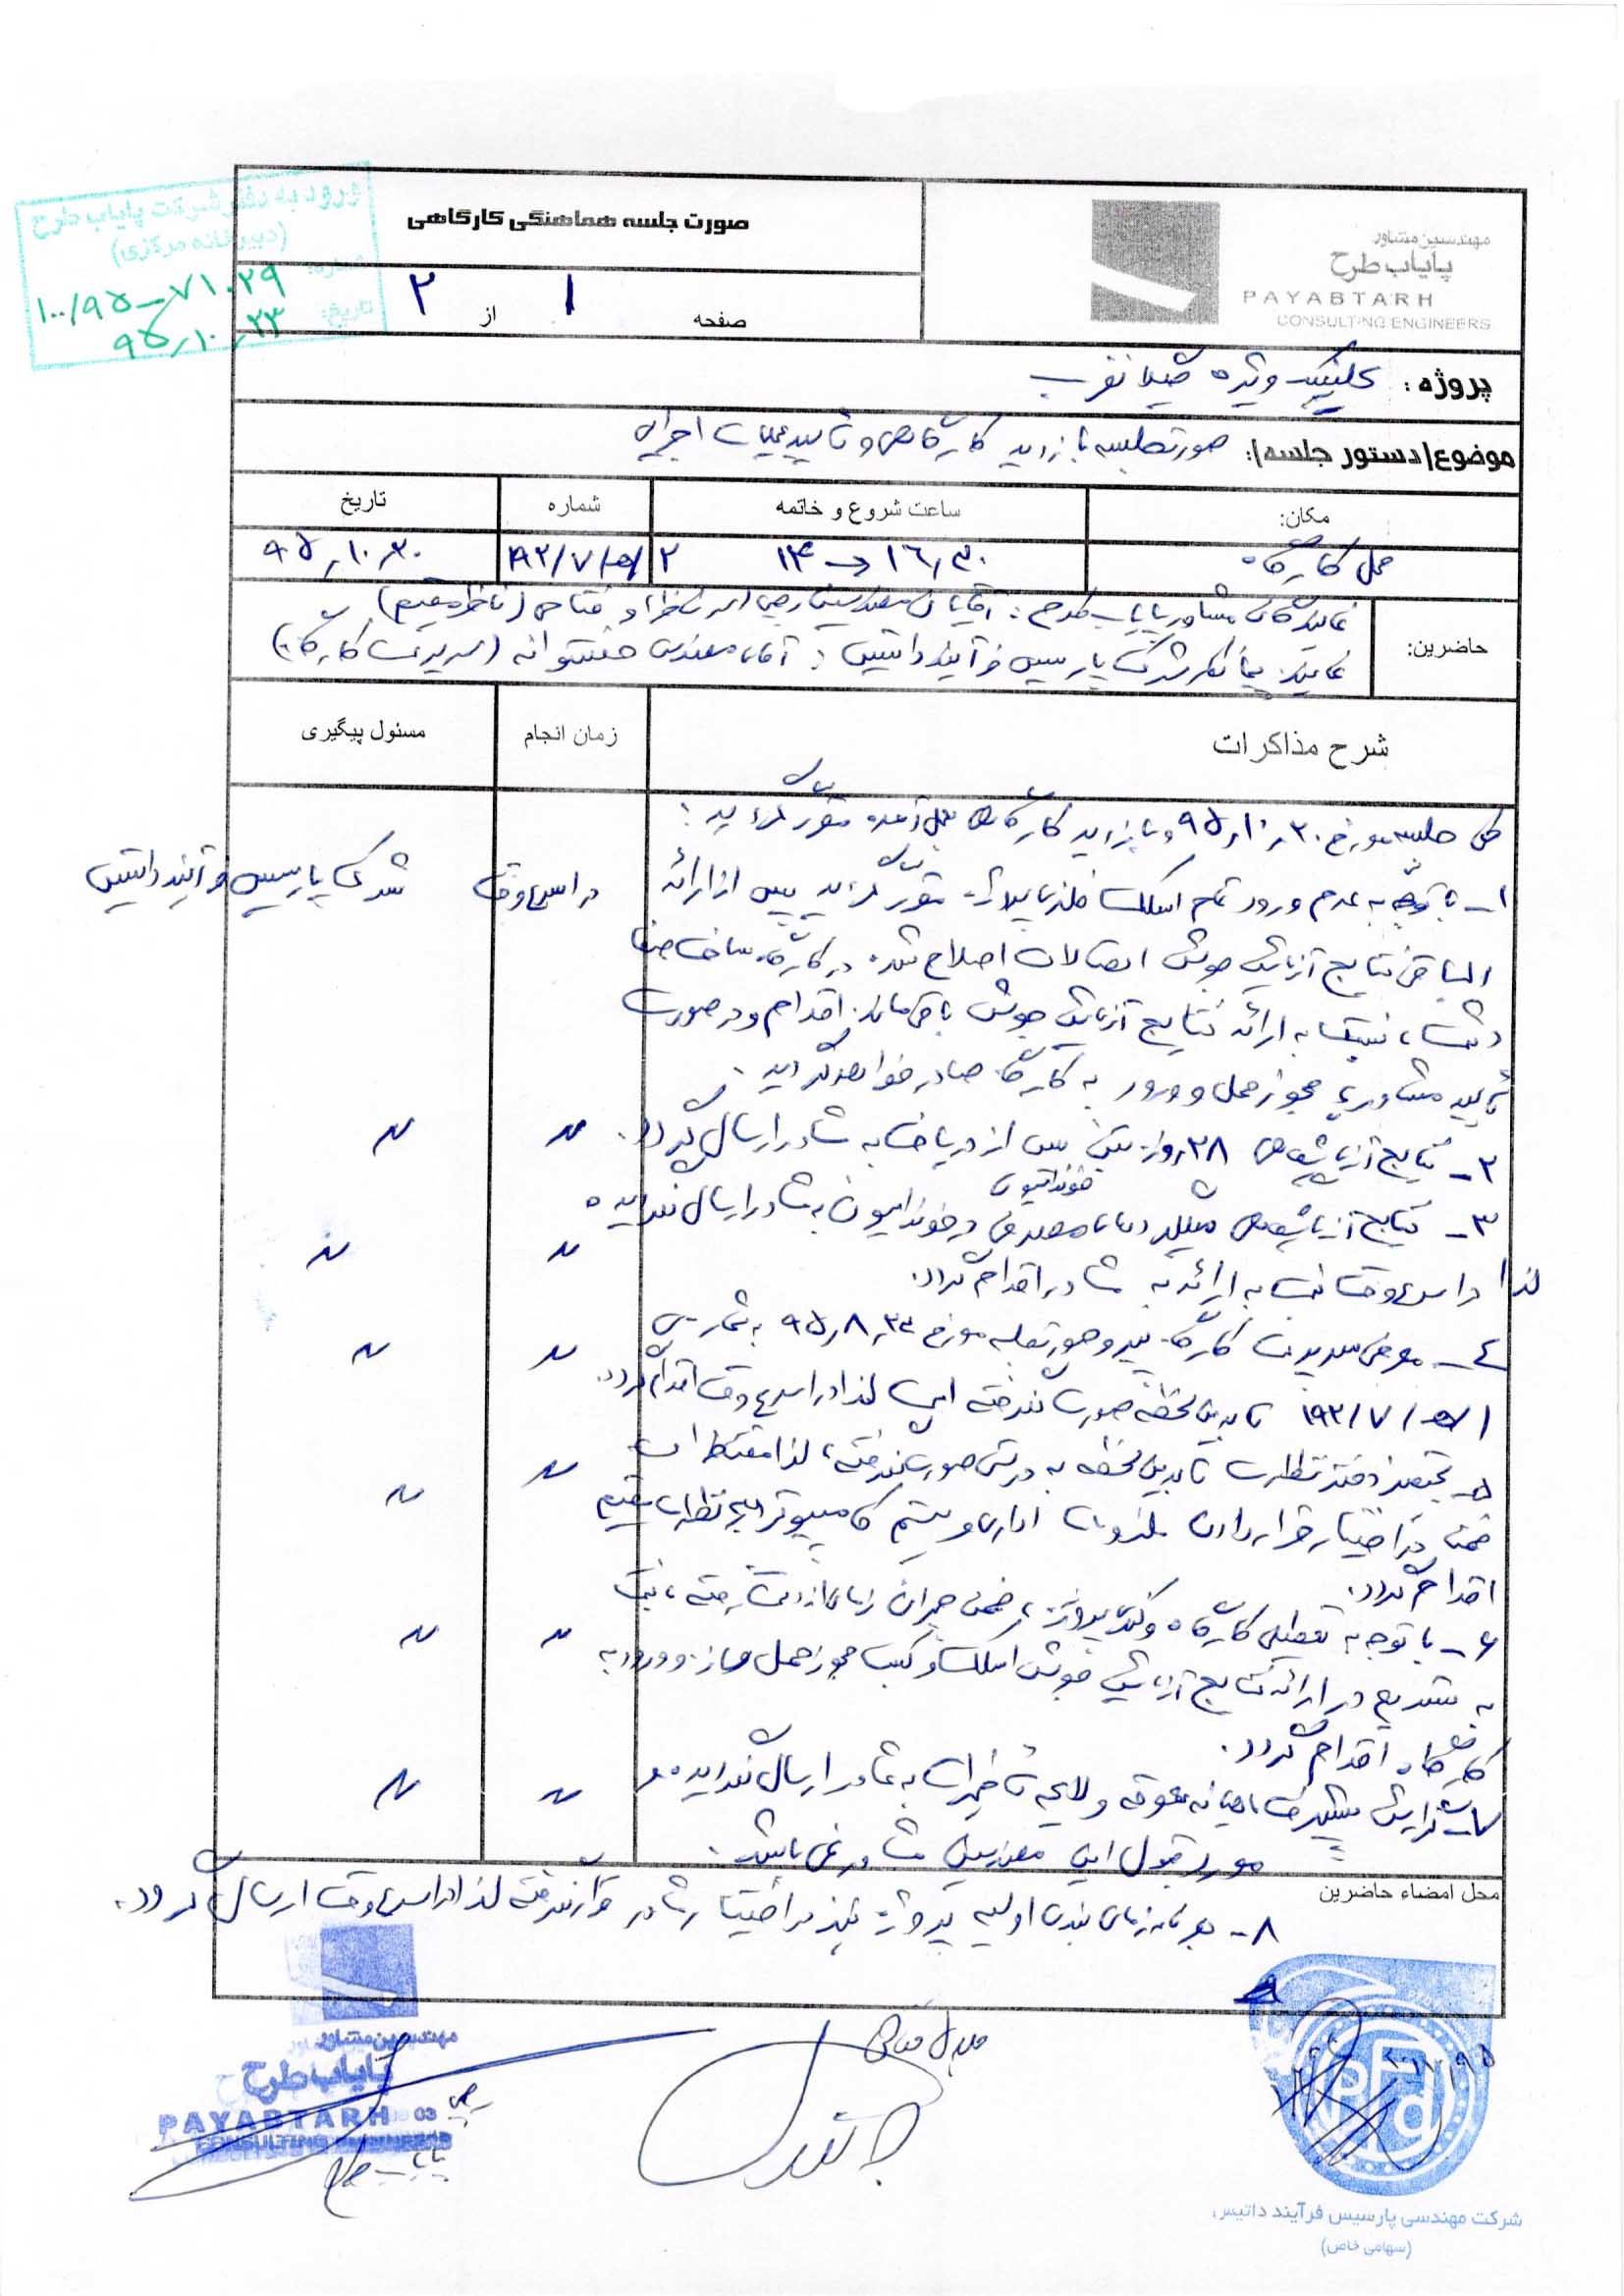 ورود به دفتر شرکت پایاب طرح
(دبیرخانه مرکزی)
شماره: ۱۰۰/۹۵-۷۱۰۲۹
تاریخ: ۹۵٫۱۰٫۲۳
صورت جلسه هماهنگی کارگاهی
صفحه ۱ از ۲
مهندسین مشاور
پایاب طرح
PAYABTARH
CONSULTING ENGINEERS
پروژه: کلینیک ویژه
موضوع(دستور جلسه): صورتجلسه بازدید کارگاهی و تأیید عملیات اجرایی
مکان: ساعت شروع و خاتمه شماره تاریخ
محل کارگاه ۱۶٫۳۰ ۱۴ ۹۵٫۱۰٫۲۰
حاضرین: نمایندگان مشاور پایاب طرح: آقایان مهندسین و فتاحی (ناظر مقیم)
نماینده پیمانکار شرکت پارسیس فرآیند داتیس: آقای مهندس (سرپرست کارگاه)
شرح مذاکرات زمان انجام مسئول پیگیری
طی جلسه مورخ ۹۵٫۱۰٫۲۰ و بازدید کارگاهی بعمل آمده مقرر گردید:
۱- با توجه به عدم ورود تمام اسکلت فلزی مقرر گردید پس از ارائه در اسرع وقت شرکت پارسیس فرآیند داتیس
الباقی نتایج آزمایش جوش اتصالات اصلاح شده در کارگاه ساخت
نسبت به ارائه نتایج آزمایش جوش باقی مانده اقدام و در صورت
تأیید مشاور، مجوز حمل و ورود به کارگاه صادر خواهد گردید.
۲- نتایج آزمایشهای ۲۸ روزه بتن پس از دریافت به مشاور ارسال گردد. 〃 〃
فونداسیون
۳- نتایج آزمایشهای میلگردهای مصرفی در فونداسیون به مشاور ارسال نگردیده
لذا در اسرع وقت نسبت به ارائه به مشاور اقدام گردد. 〃 〃
۴- معرفی سرپرست کارگاه پیرو صورتجلسه مورخ ۹۵٫۸٫ به شماره 〃 〃
تا بدین لحظه صورت نگرفته است لذا در اسرع وقت اقدام گردد.
۵- تجهیز دفتر نظارت تا بدین لحظه به درستی صورت نگرفته، لذا مقتضی است 〃 〃
ضمن در اختیار قرار دادن ملزومات اداری و سیستم کامپیوتر نظارت مقیم
اقدام گردد.
۶- با توجه به تعطیلی کارگاه و کندی پروژه، ضمن جبران زمان از دست رفته، نسبت
به تسریع در ارائه نتایج آزمایش جوش اسکلت و کسب مجوز حمل سازه و ورود به 〃 〃
کارگاه اقدام گردد.
۷- گزارش پیشرفت ماهیانه معوقه و لایحه تأخیرات به مشاور ارسال نگردیده و 〃 〃
مورد قبول این مهندسین مشاور نمی باشد.
محل امضاء حاضرین
۸- برنامه زمان بندی اولیه پروژه نیز در اختیار مشاور قرار نگرفته لذا در اسرع وقت ارسال گردد.
مهندسین مشاور
پایاب طرح
PAYABTARH
CONSULTING ENGINEERS
پایاب طرح
شرکت مهندسی پارسیس فرآیند داتیس
(سهامی خاص)